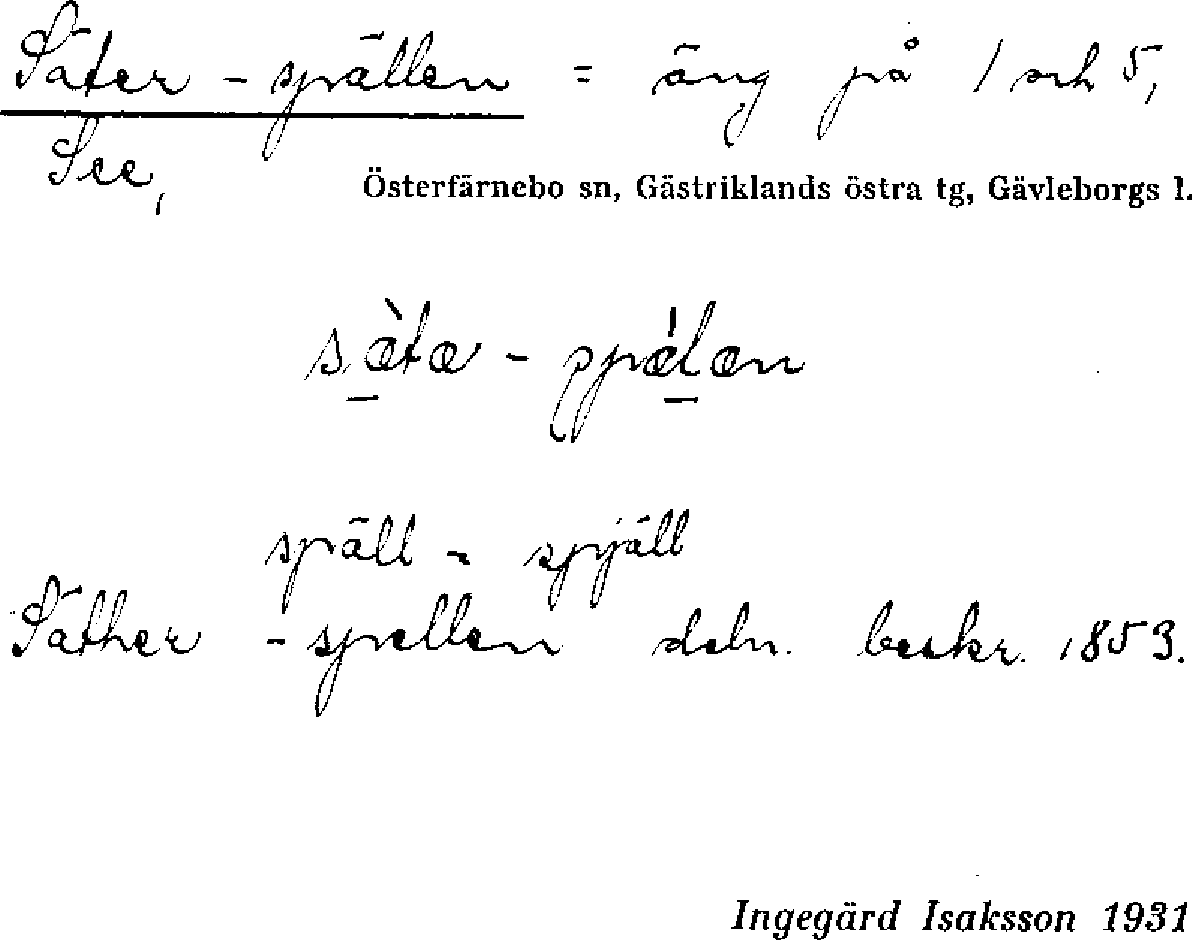 Säter - spällen = äng på 1 och 5,
See,
Österfärnebo sn, Gästriklands östra tg, Gävleborgs l.
späll = spjäll
Säther - spellen deln. beskr. 1853.
Ingegärd Isaksson 1931